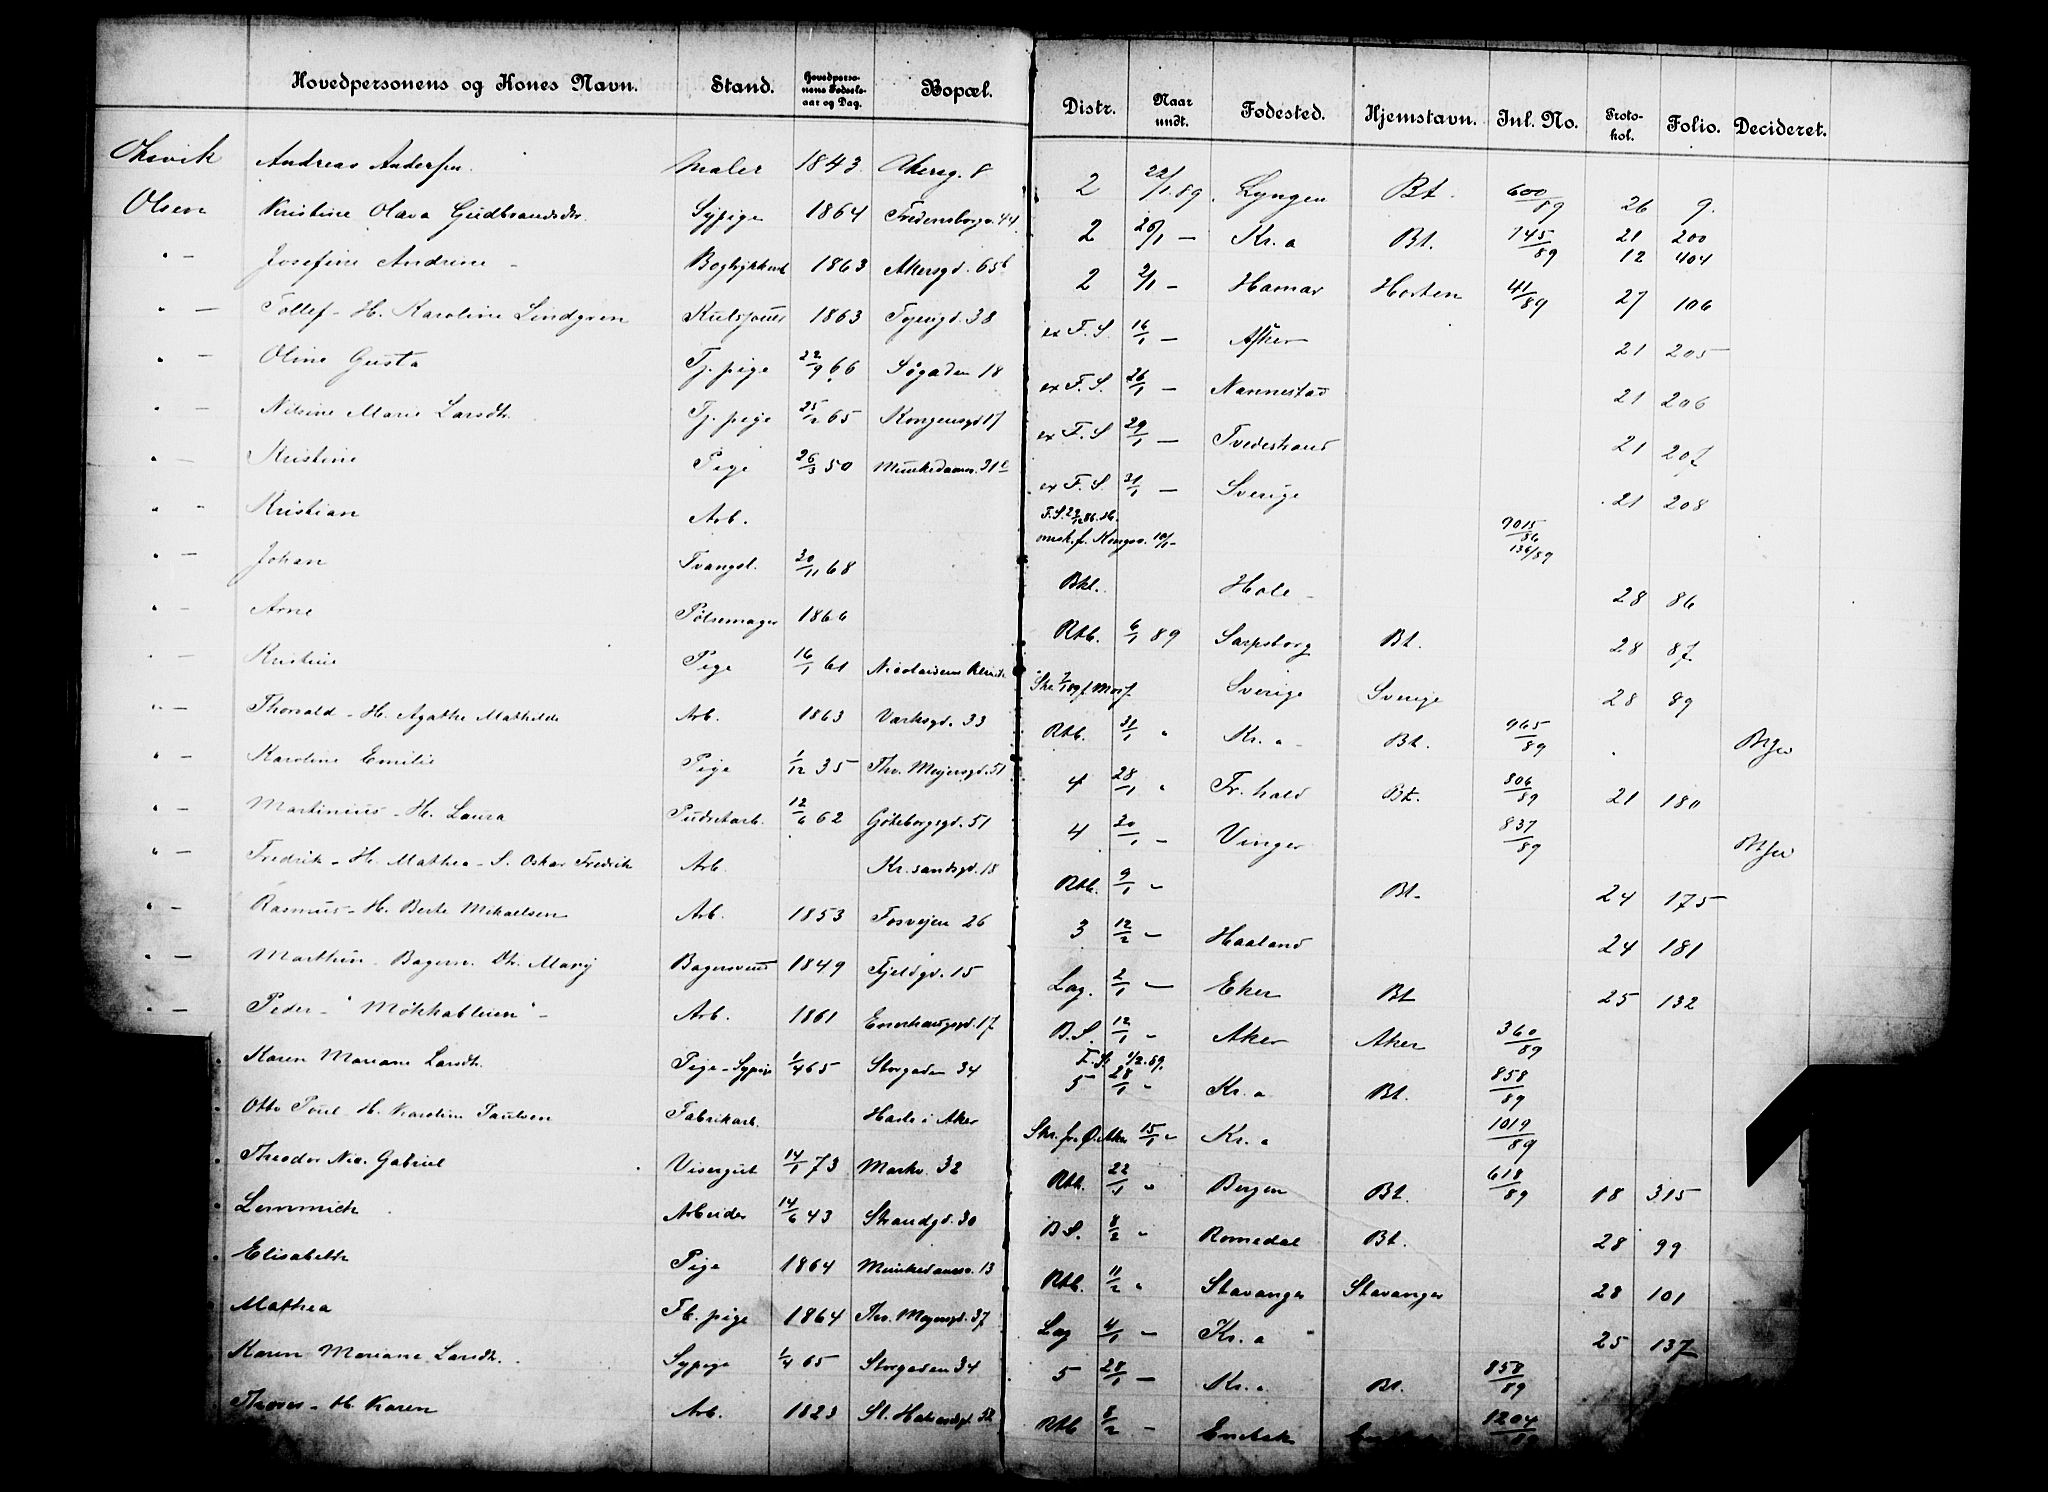 Hovedpersonens og Kones Navn. Stand. Hovedpersonens Fødselsaar og Dag. Bopæl. Distr. Naar undt. Fødested. Hjemstavn. Inl. No. Protokol. Folio. Decideret.
Andreas Andersen. Maler 1843 Akersg. 8 2 22/1 89. Lyngen Bt. 600/89 26 9.
Olsen Kristine Olava Gudbrandsdr. Sypige 1864 Fredensborgv. 44 2 26/1 — Kr.a Bt. 145/89 21 200 12 404
" — Josefine Andrine — 1863 Akersgd. 65b 2 2/1 — Hamar Horten 41/89 27 106
" — Tollef — H. Karoline Lindgren 1863 Tøiengd. 38 ex F.S. 16/1 — Asker 21 205
" — Oline Gusta Tj. pige 22/9 66 Søgaden 18 ex F.S. 26/1 — Nannestad 21 206
" — Nilsine Marie Larsdtr. Tj. pige 25/12 65 Kongensgd 17 ex F.S 29/1 — Tvedestrand 21 207
" — Kristine Pige 26/3 50 Munkedamsv. 31c ex F.S. 31/1 — Sverige 21 208
" — Kristian Arb. F.S. 22/12 86. omsk. f. Kongsv. 10/1 — 7015/86 136/89
" — Johan Tvangsl. 20/11 68 Bkl. Hole — 28 86
" — Arne Pølsemager 1866 Rtb. 6/1 89 Sarpsborg Bt. 28 87
" — Kristine Pige 16/1 61 Sverige Sverige 28 89
" — Thorvald — H. Agathe Mathilde Arb. 1863 Verksgd. 33 Rtb. 31/1 " Kr.a — Bt. 965/89
" — Karoline Emilie Pige 1/12 35 Thv. Meyersgd. 51 4 28/1 " Fr.hald Bt. 806/89 21 180
" — Martinius — H. Laura Pudretarb. 12/6 62 Göteborgsgd. 51 4 20/1 — Vinger 837/89
" — Fredrik — H. Mathea — S. Oskar Fredrik Arb. Kr.sandsgd. 18 Rtb. 9/1 " Bt. 24 175
" — Rasmus — H. Berte Mikaelsen Arb. 1853 Fosvejen 26 3 12/2 — Haaland 24 181
" — Marthin — Bagersv. Dtr. Marij Bagersvend 1849 Fjeldgd. 15 Lag. 2/1 — Eker Bt 25 132
" — Peder — "Møkkableien" — Arb. 1861 Enerhaugsgd. 17 B.S. 12/1 " Aker Aker 360/89
Karen Mariane Larsdtr. Pige — Sypige 1/4 65 Storgaden 34 F.S. 1/2.89. 5 28/1 " Kr.a Bt. 858/89
Otto Poul — H. Karoline Paulsen Fabrikarb. Hasle i Aker Skr. fr. Ø. Aker 15/1 " Kr.a 1019/89
Theodor Nic. Gabriel Visergut 14/1 73 Markv. 32 Rtb. 22/1 " Bergen Bt. 618/89 18 315
Lemmich Arbeider 14/6 43 Strandgd. 30 B.S. 8/2 " Romedal Bt. 28 99
Elisabeth Pige 1864 Munkedamsv. 13 Rtb. 11/2 " Stavanger Stavanger 28 101
Mathea Fb. pige 1864 Thv. Meyersgd. 37 Lag 4/1 — Kr.a 25 137
Karen Mariane Larsdtr. Sypige 1/4 65 Storgaden 34 5 28/1 — Kr.a Bt. 858/89
H. Karen Arb. 1823 Rtb 8/2 — Enebak 1204/89